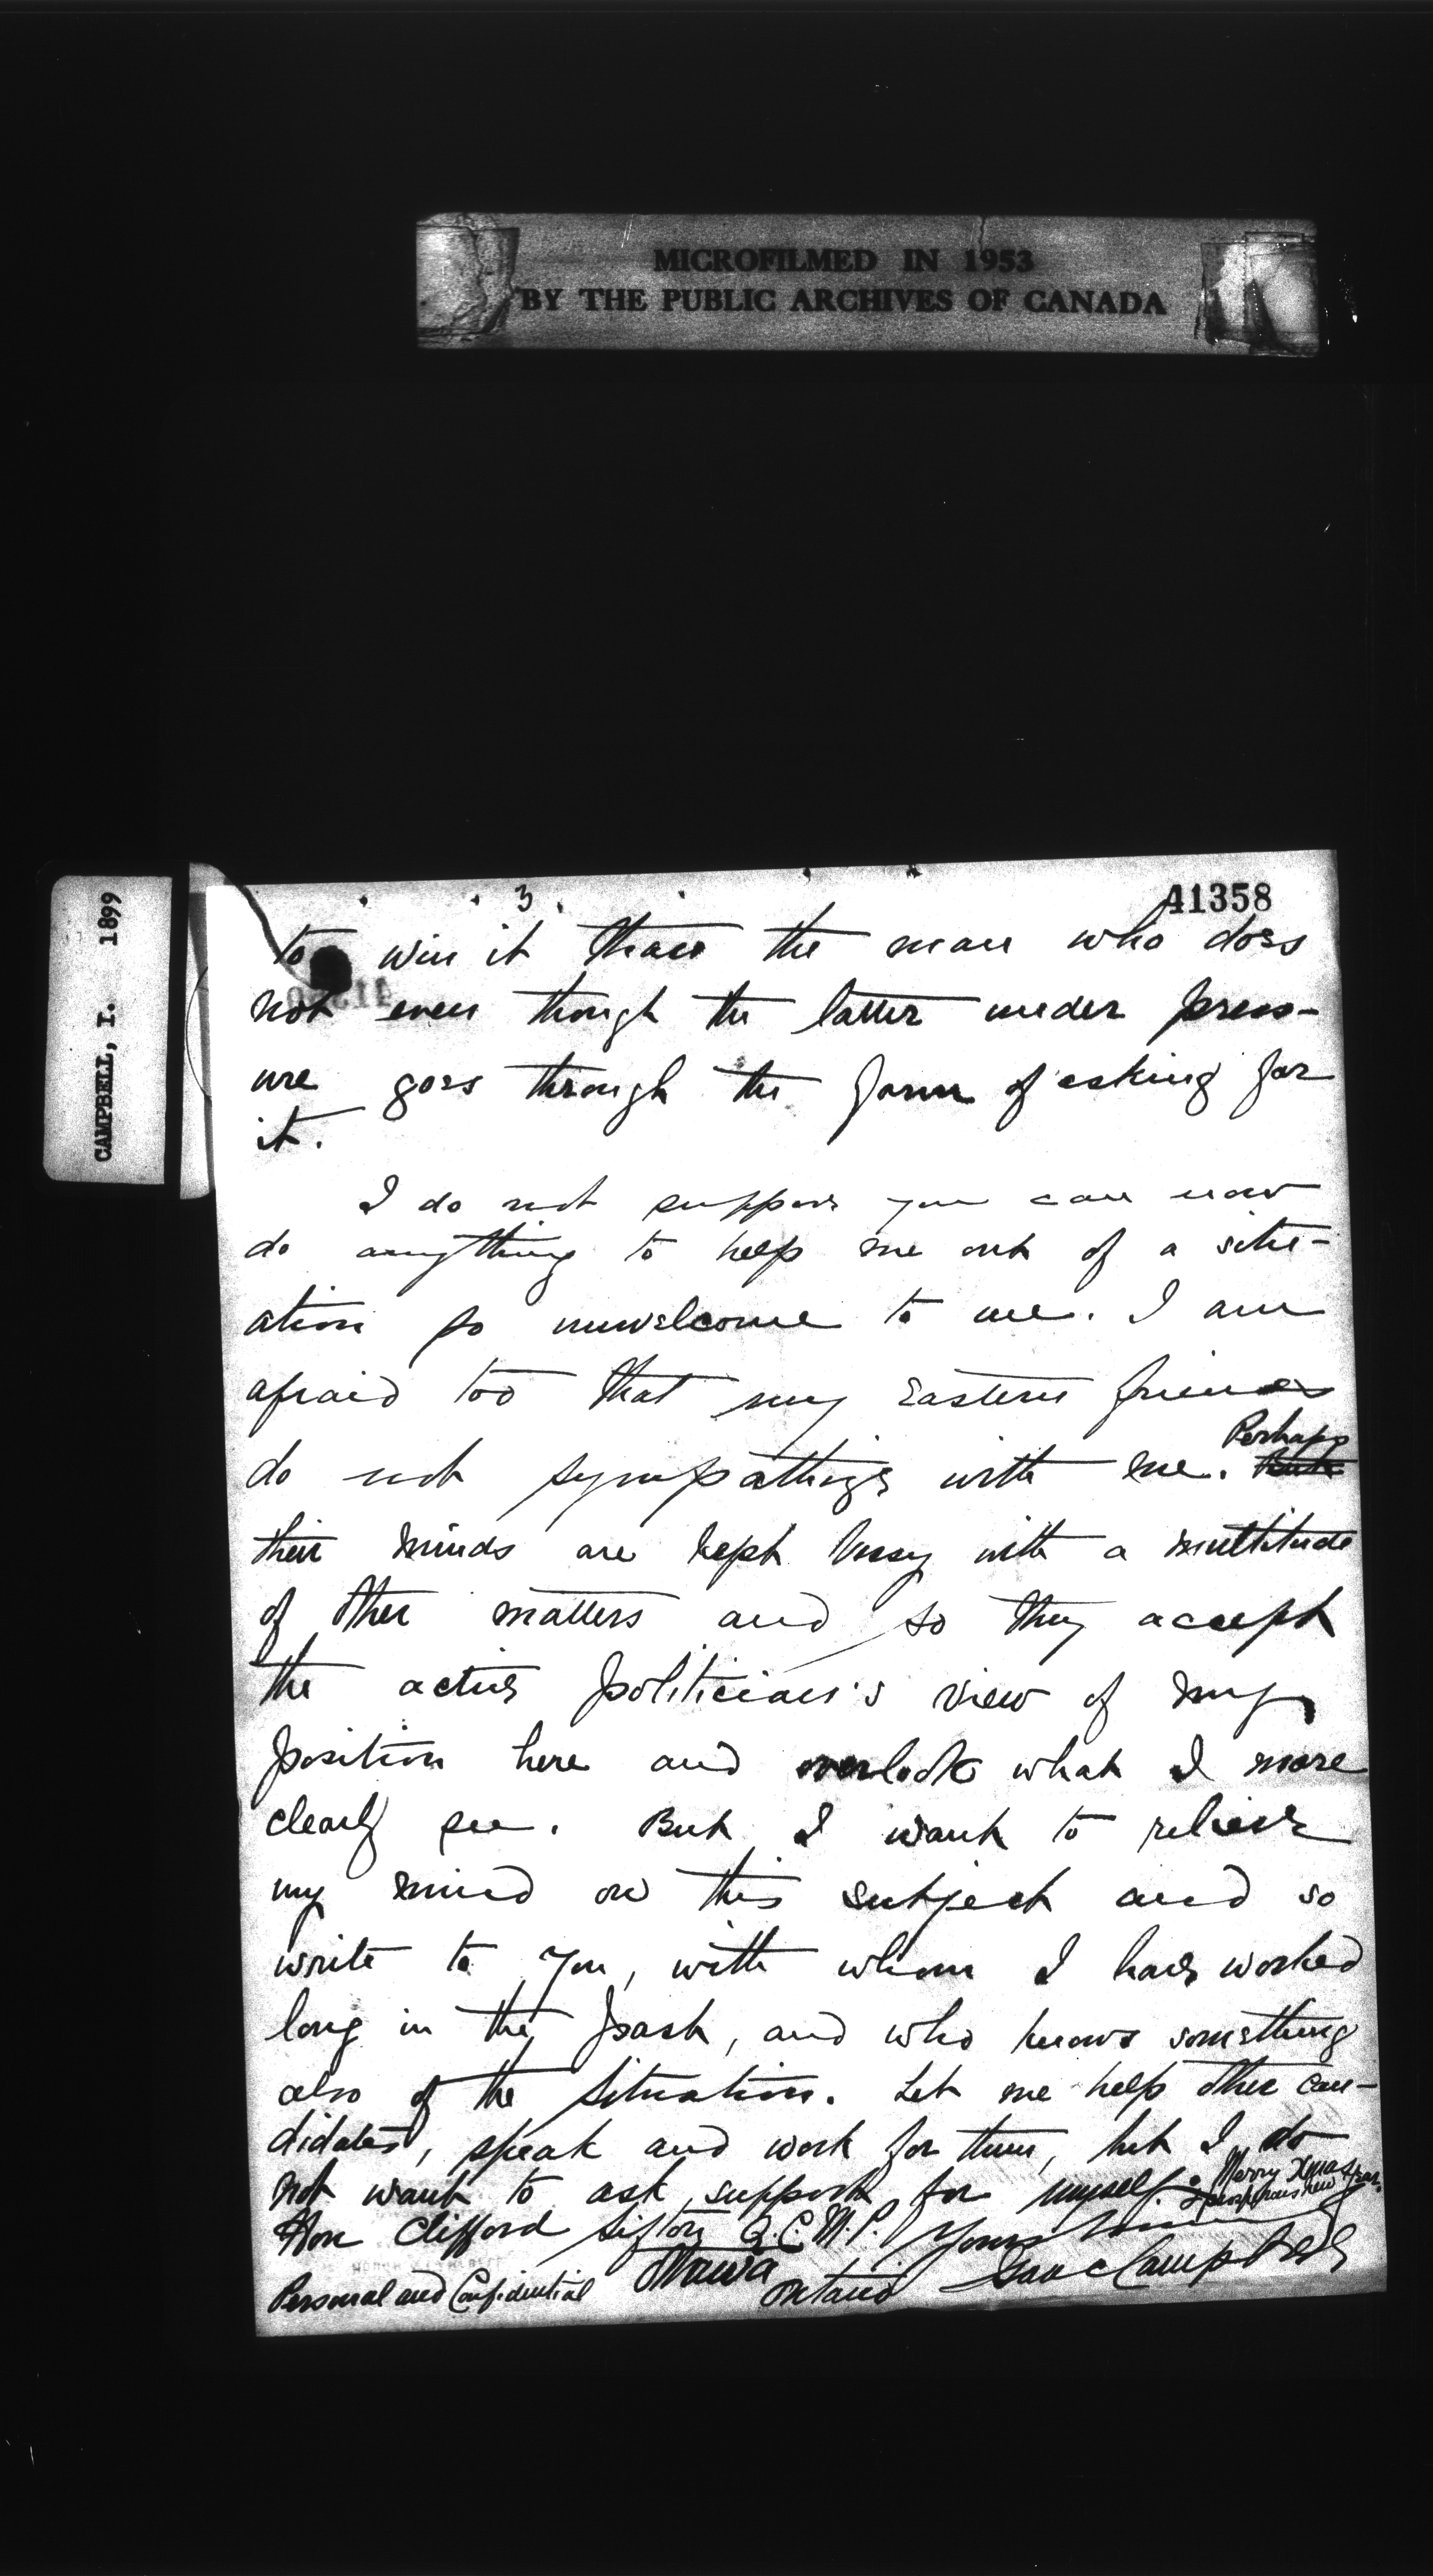 MICROFILMED IN 1953
BY THE PUBLIC ARCHIVES OF CANADA
CAMPBELL, I. 1899
3
41358
to win it than the man who does
not even though the latter under press-
ure goes through the form of asking for
it.
I do not suppose you can now
do anything to help me out of a situ-
ation so unwelcome to me. I am
afraid too that my Eastern friends
do not sympathize with me. Perhaps
their minds are kept busy with a multitude
of other matters and so they accept
the active politician's view of my
position here and overlook what I more
clearly see. But I want to relieve
my mind on this subject and so
write to you, with whom I have worked
long in the past, and who knows something
also of the situation. Let me help other can-
didates, speak and work for them, but I do
not want to ask support for myself.
Merry Xmas
& prosperous new year.
Hon Clifford Sifton Q.C. M.P. Yours
Ottawa
Ontario
Isaac Campbell
Personal and Confidential